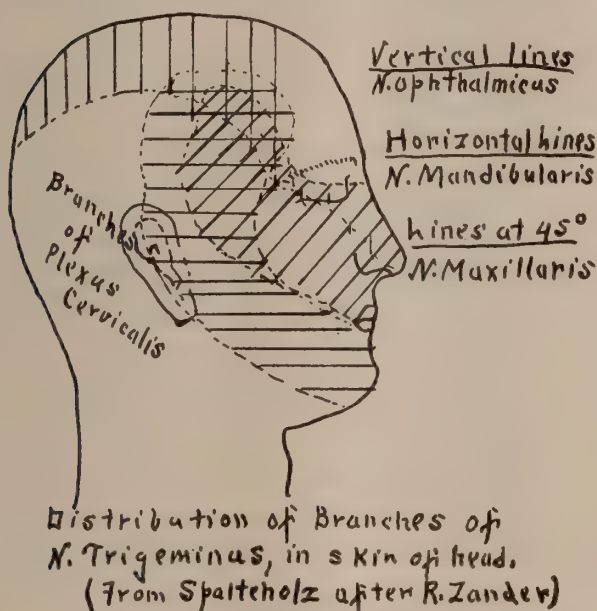 Vertical lines
N. Ophthalmicus
Horizontal Lines
N. Mandibularis
Lines at 45°
N. Maxillaris
Branches
of
Plexus
Cervicalis
Distribution of Branches of
N. Trigeminus, in skin of head.
(From Spalteholz after R. Zander)